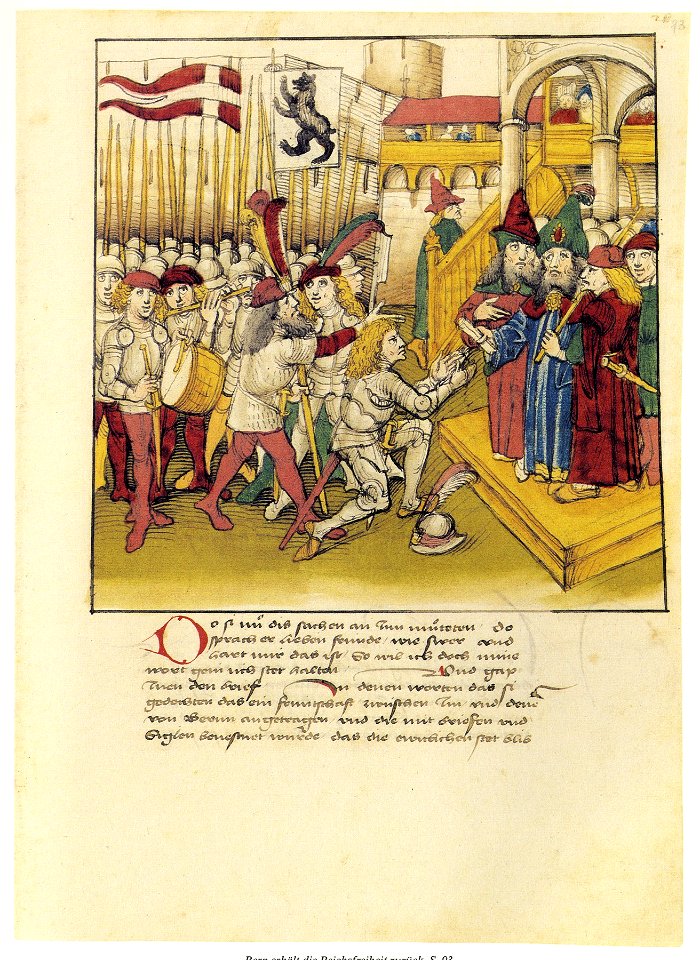 Do si nů dis sachen an Inn můteten Do
sprach er lieben frunde wie swer und
hart mir das ist So wil ich doch mine
wort gern uch stet halten Und gap
Inen den brief In denen worten das si
gedochten das ein fruntschaft zwuschen Im und dene
von Bernn angetragen und die mit briefen und
Siglen bevestnet wurde das die ewiclichen stet blib
Bern erhält die Reichsfreiheit zurück. S. 93